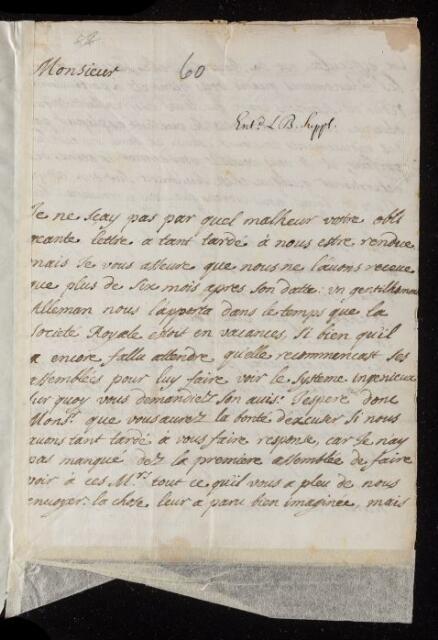 52
Monsieur 60
Ent.d L B. Suppl.
Je ne sçay pas par quel malheur vostre obli
geante lettre a tant tardé à nous estre rendue
mais Je vous asseure que nous ne l'auons receue
que plus de six mois apres son datte: un gentilhomme
Alleman nous l'apporta dans le temps que la
Societé Royale estoit en vacances, si bien qu'il
a encore fallu attendre qu'elle recommencast ses
assemblées pour luy faire voir le systeme ingenieux
sur quoy vous demandiez son auis: J'espere donc
Mons.r que vous aurez la bonté d'excuser si nous
auons tant tardé a vous faire response, car Je n'ay
pas manqué dez la premiere assemblée de faire
voir à ces M.rs tout ce qu'il vous a pleu de nous
enuoyer: la chose leur a paru bien imaginée, mais